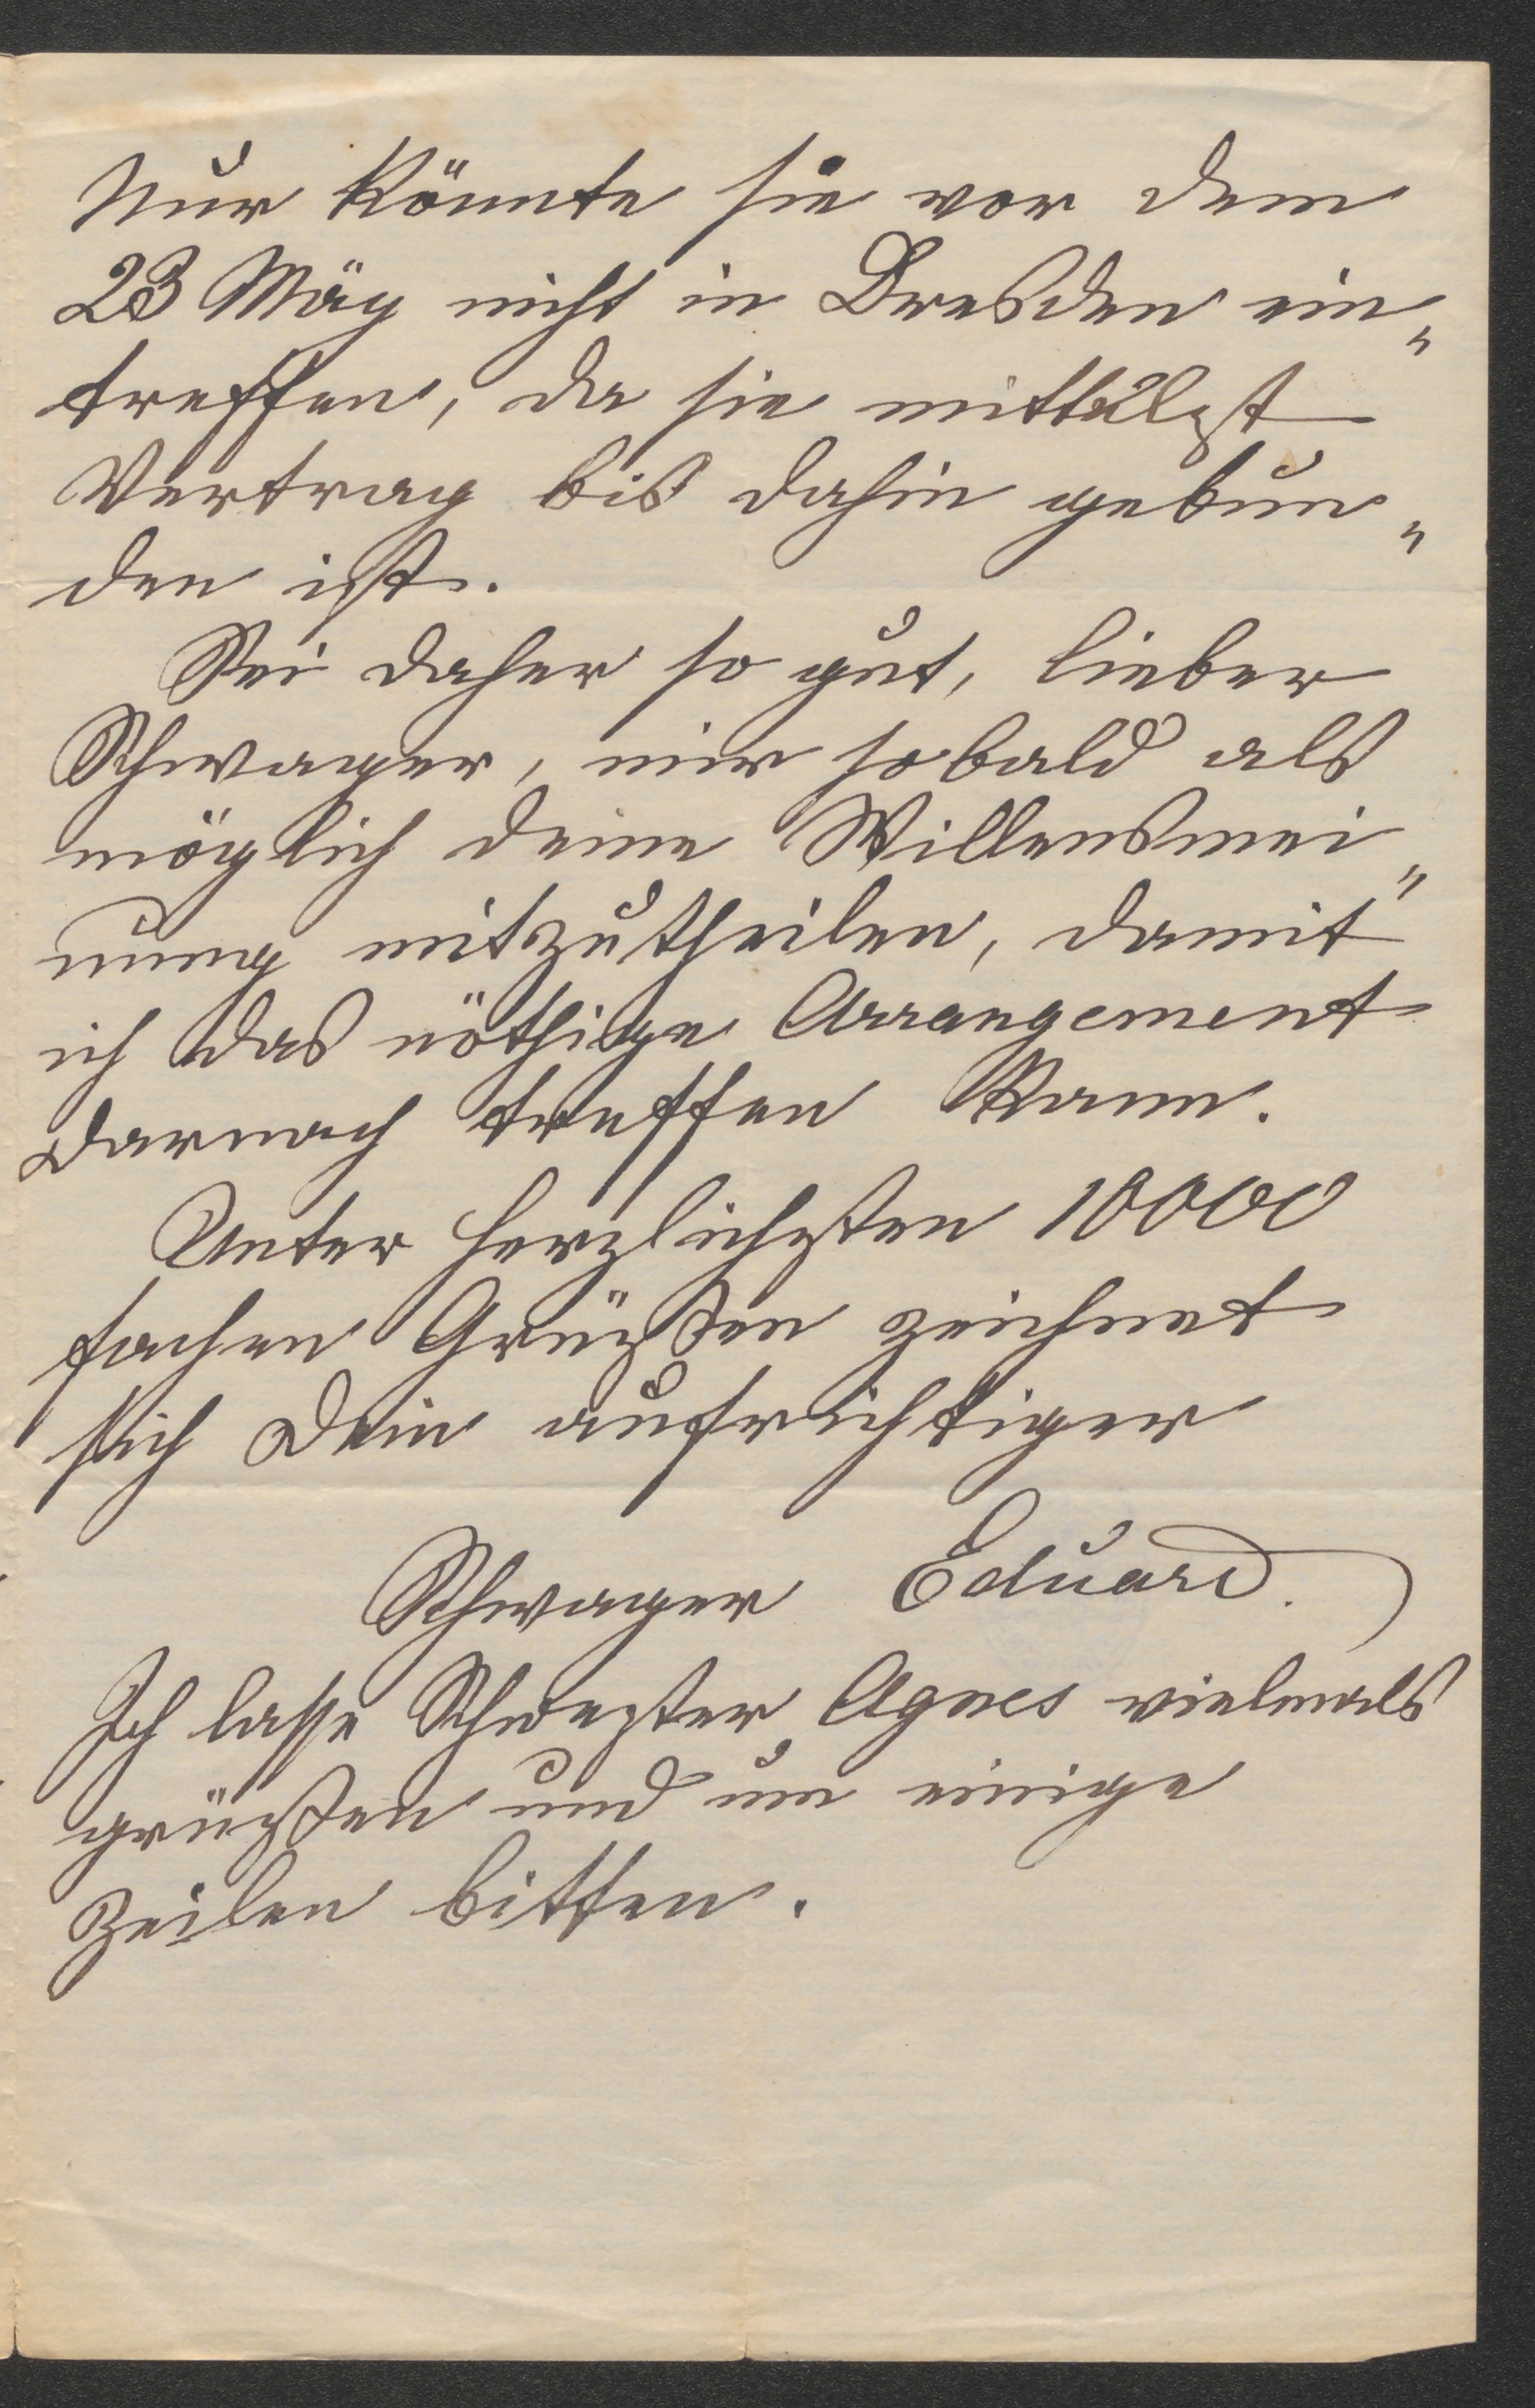 Nur könnte sie vor dem
23 März nicht in Dresden ein„
treffen, da sie mittelst
Vertrag bis dahin gebun„
den ist.
Sei daher so gut, lieber
Schwager, mir sobald als
möglich deine Willensmei„
nung mitzutheilen, damit
ich das nöthige Arrangement
darnach treffen kann.
Unter herzlichsten 10000
fachen Grüßen zeichnet
sich Dein aufrichtiger
Schwager Eduard.
Ich lasse Schwester Agnes vielmals
grüßen und um einige
Zeilen bitten.